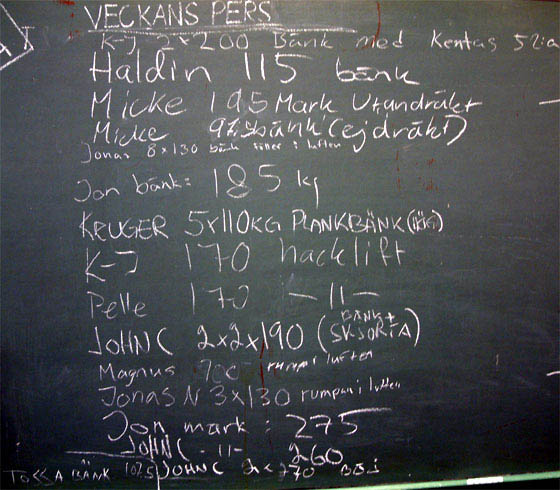 VECKANS PERS
K-J 2x200 Bänk med Kentas
Haldin 115 bänk
Micke 195 Mark Utandräkt
Micke bänk (ej dräkt)
Jonas 8x130 bänk i luften
Jon bänk: 185 kg
KRUGER 5x110KG PLANKBÄNK
K-J 170 hacklift
Pelle 170 -11-
JOHN C 2x2x190 (BÄNK+ SKJORTA)
Magnus 700 rumpi luften
Jonas N 3x130 rumpan i luften
Jon mark: 275
JOHN C -11- 260
TOSSA BÄNK 107.5 JOHN C 2x270 BÖJ